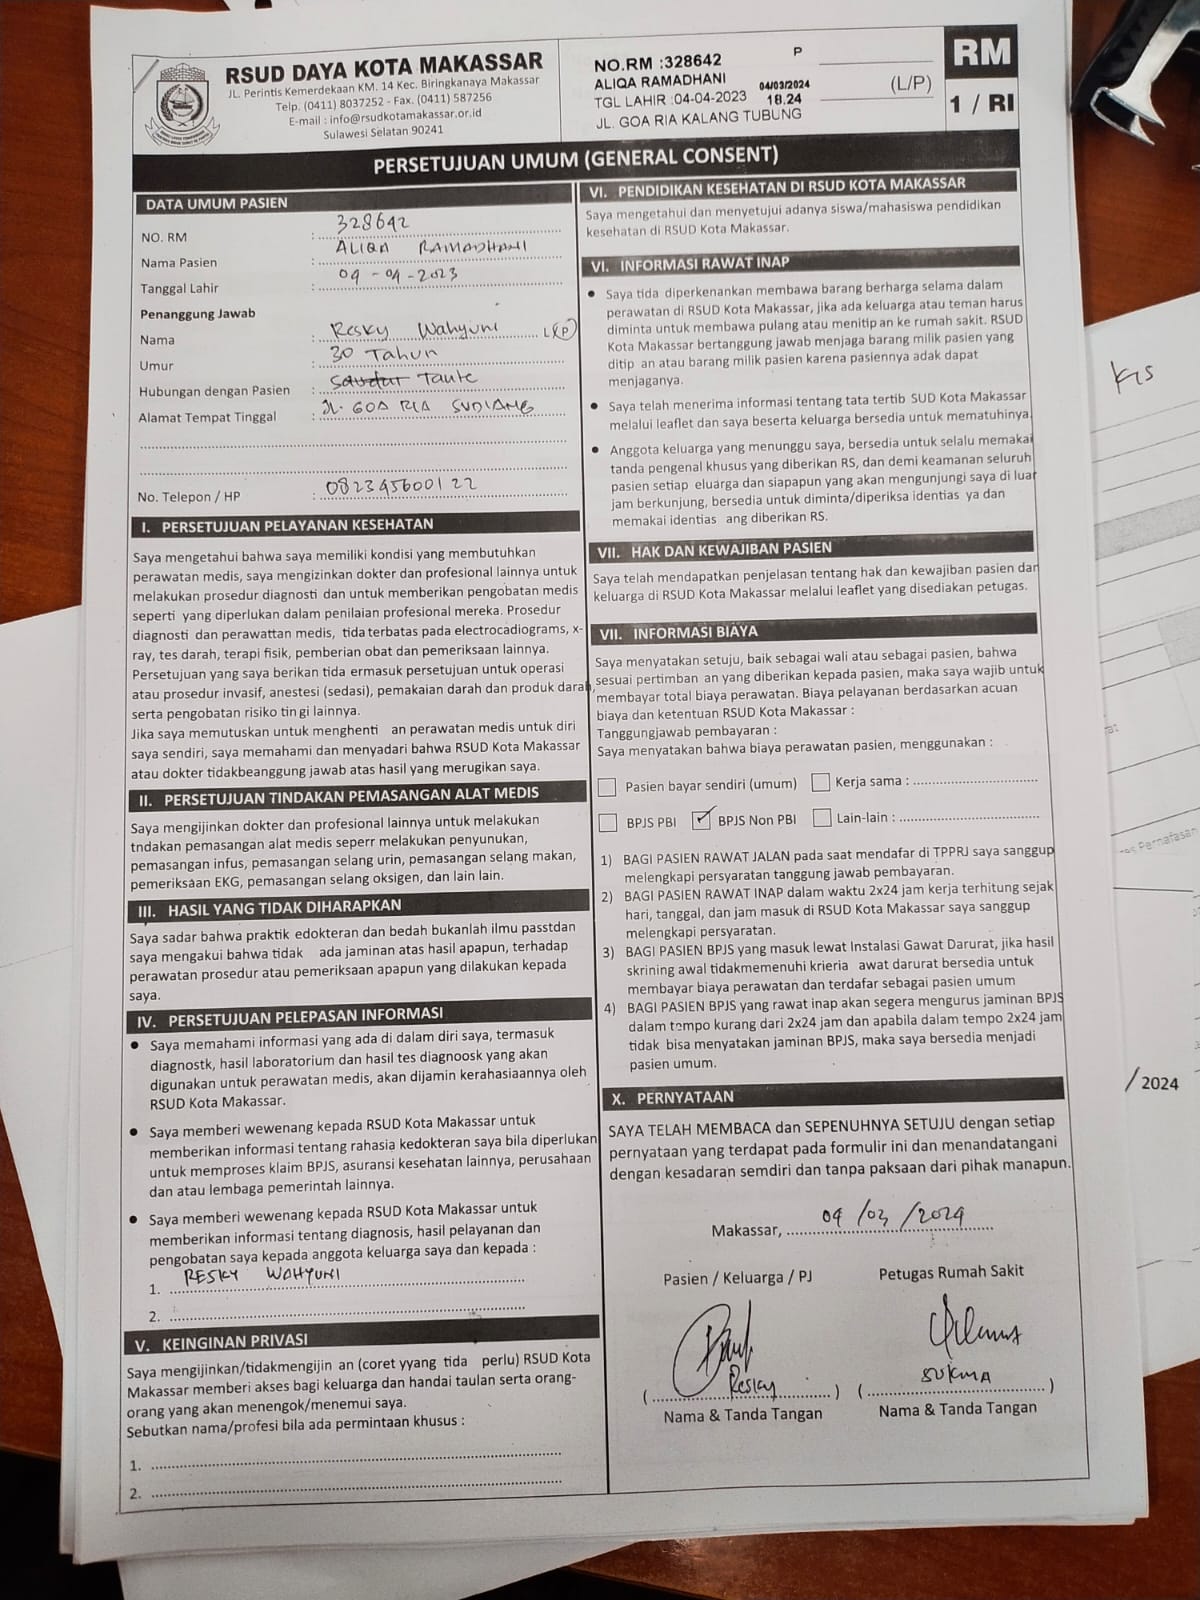 RSUD DAYA KOTA MAKASSAR
JL. Perintis Kemerdekaan KM. 14 Kec. Biringkanaya Makassar
Telp. (0411) 8037252 - Fax. (0411) 587256
E-mail : info@rsudkotamakassar.or.id
Sulawesi Selatan 90241
NO.RM :328642 P
ALIQA RAMADHANI 04/03/2024
TGL LAHIR :04-04-2023 18.24
JL. GOA RIA KALANG TUBUNG
(L/P)
RM
1 / RI
PERSETUJUAN UMUM (GENERAL CONSENT)
DATA UMUM PASIEN
NO. RM : 328642
Nama Pasien : ALIQA RAMADHANI
Tanggal Lahir : 04-04-2023
Penanggung Jawab
Nama : Resky Wahyuni L/P
Umur : 30 Tahun
Hubungan dengan Pasien : Saudar Tante
Alamat Tempat Tinggal : JL. GOA RIA SUDIANG
No. Telepon / HP : 082345600122
I. PERSETUJUAN PELAYANAN KESEHATAN
Saya mengetahui bahwa saya memiliki kondisi yang membutuhkan
perawatan medis, saya mengizinkan dokter dan profesional lainnya untuk
melakukan prosedur diagnosti dan untuk memberikan pengobatan medis
seperti yang diperlukan dalam penilaian profesional mereka. Prosedur
diagnosti dan perawattan medis, tida terbatas pada electrocadiograms, x-
ray, tes darah, terapi fisik, pemberian obat dan pemeriksaan lainnya.
Persetujuan yang saya berikan tida ermasuk persetujuan untuk operasi
atau prosedur invasif, anestesi (sedasi), pemakaian darah dan produk darah,
serta pengobatan risiko tin gi lainnya.
Jika saya memutuskan untuk menghenti an perawatan medis untuk diri
saya sendiri, saya memahami dan menyadari bahwa RSUD Kota Makassar
atau dokter tidakbeanggung jawab atas hasil yang merugikan saya.
II. PERSETUJUAN TINDAKAN PEMASANGAN ALAT MEDIS
Saya mengijinkan dokter dan profesional lainnya untuk melakukan
tndakan pemasangan alat medis seperr melakukan penyunukan,
pemasangan infus, pemasangan selang urin, pemasangan selang makan,
pemeriksaan EKG, pemasangan selang oksigen, dan lain lain.
III. HASIL YANG TIDAK DIHARAPKAN
Saya sadar bahwa praktik edokteran dan bedah bukanlah ilmu passtdan
saya mengakui bahwa tidak ada jaminan atas hasil apapun, terhadap
perawatan prosedur atau pemeriksaan apapun yang dilakukan kepada
saya.
IV. PERSETUJUAN PELEPASAN INFORMASI
• Saya memahami informasi yang ada di dalam diri saya, termasuk
diagnostk, hasil laboratorium dan hasil tes diagnoosk yang akan
digunakan untuk perawatan medis, akan dijamin kerahasiaannya oleh
RSUD Kota Makassar.
• Saya memberi wewenang kepada RSUD Kota Makassar untuk
memberikan informasi tentang rahasia kedokteran saya bila diperlukan
untuk memproses klaim BPJS, asuransi kesehatan lainnya, perusahaan
dan atau lembaga pemerintah lainnya.
• Saya memberi wewenang kepada RSUD Kota Makassar untuk
memberikan informasi tentang diagnosis, hasil pelayanan dan
pengobatan saya kepada anggota keluarga saya dan kepada :
1. RESKY WAHYUNI
2.
V. KEINGINAN PRIVASI
Saya mengijinkan/tidakmengijin an (coret yyang tida perlu) RSUD Kota
Makassar memberi akses bagi keluarga dan handai taulan serta orang-
orang yang akan menengok/menemui saya.
Sebutkan nama/profesi bila ada permintaan khusus :
1.
2.
VI. PENDIDIKAN KESEHATAN DI RSUD KOTA MAKASSAR
Saya mengetahui dan menyetujui adanya siswa/mahasiswa pendidikan
kesehatan di RSUD Kota Makassar.
VI. INFORMASI RAWAT INAP
• Saya tida diperkenankan membawa barang berharga selama dalam
perawatan di RSUD Kota Makassar, jika ada keluarga atau teman harus
diminta untuk membawa pulang atau menitip an ke rumah sakit. RSUD
Kota Makassar bertanggung jawab menjaga barang milik pasien yang
ditip an atau barang milik pasien karena pasiennya adak dapat
menjaganya.
• Saya telah menerima informasi tentang tata tertib SUD Kota Makassar
melalui leaflet dan saya beserta keluarga bersedia untuk mematuhinya
• Anggota keluarga yang menunggu saya, bersedia untuk selalu memakai
tanda pengenal khusus yang diberikan RS, dan demi keamanan seluruh
pasien setiap eluarga dan siapapun yang akan mengunjungi saya di luar
jam berkunjung, bersedia untuk diminta/diperiksa identias ya dan
memakai identias ang diberikan RS.
VII. HAK DAN KEWAJIBAN PASIEN
Saya telah mendapatkan penjelasan tentang hak dan kewajiban pasien dan
keluarga di RSUD Kota Makassar melalui leaflet yang disediakan petugas.
VII. INFORMASI BIAYA
Saya menyatakan setuju, baik sebagai wali atau sebagai pasien, bahwa
sesuai pertimban an yang diberikan kepada pasien, maka saya wajib untuk
membayar total biaya perawatan. Biaya pelayanan berdasarkan acuan
biaya dan ketentuan RSUD Kota Makassar :
Tanggungjawab pembayaran :
Saya menyatakan bahwa biaya perawatan pasien, menggunakan :
Pasien bayar sendiri (umum) Kerja sama :
BPJS PBI ✓ BPJS Non PBI Lain-lain :
1) BAGI PASIEN RAWAT JALAN pada saat mendafar di TPPRJ saya sanggup
melengkapi persyaratan tanggung jawab pembayaran.
2) BAGI PASIEN RAWAT INAP dalam waktu 2x24 jam kerja terhitung sejak
hari, tanggal, dan jam masuk di RSUD Kota Makassar saya sanggup
melengkapi persyaratan.
3) BAGI PASIEN BPJS yang masuk lewat Instalasi Gawat Darurat, jika hasil
skrining awal tidakmemenuhi krieria awat darurat bersedia untuk
membayar biaya perawatan dan terdafar sebagai pasien umum
4) BAGI PASIEN BPJS yang rawat inap akan segera mengurus jaminan BPJS
dalam tempo kurang dari 2x24 jam dan apabila dalam tempo 2x24 jam
tidak bisa menyatakan jaminan BPJS, maka saya bersedia menjadi
pasien umum.
X. PERNYATAAN
SAYA TELAH MEMBACA dan SEPENUHNYA SETUJU dengan setiap
pernyataan yang terdapat pada formulir ini dan menandatangani
dengan kesadaran semdiri dan tanpa paksaan dari pihak manapun.
Makassar, 04/03/2024
Pasien / Keluarga / PJ Petugas Rumah Sakit
( Resky ) ( SUKMA )
Nama & Tanda Tangan Nama & Tanda Tangan
Pernafasan
/ 2024